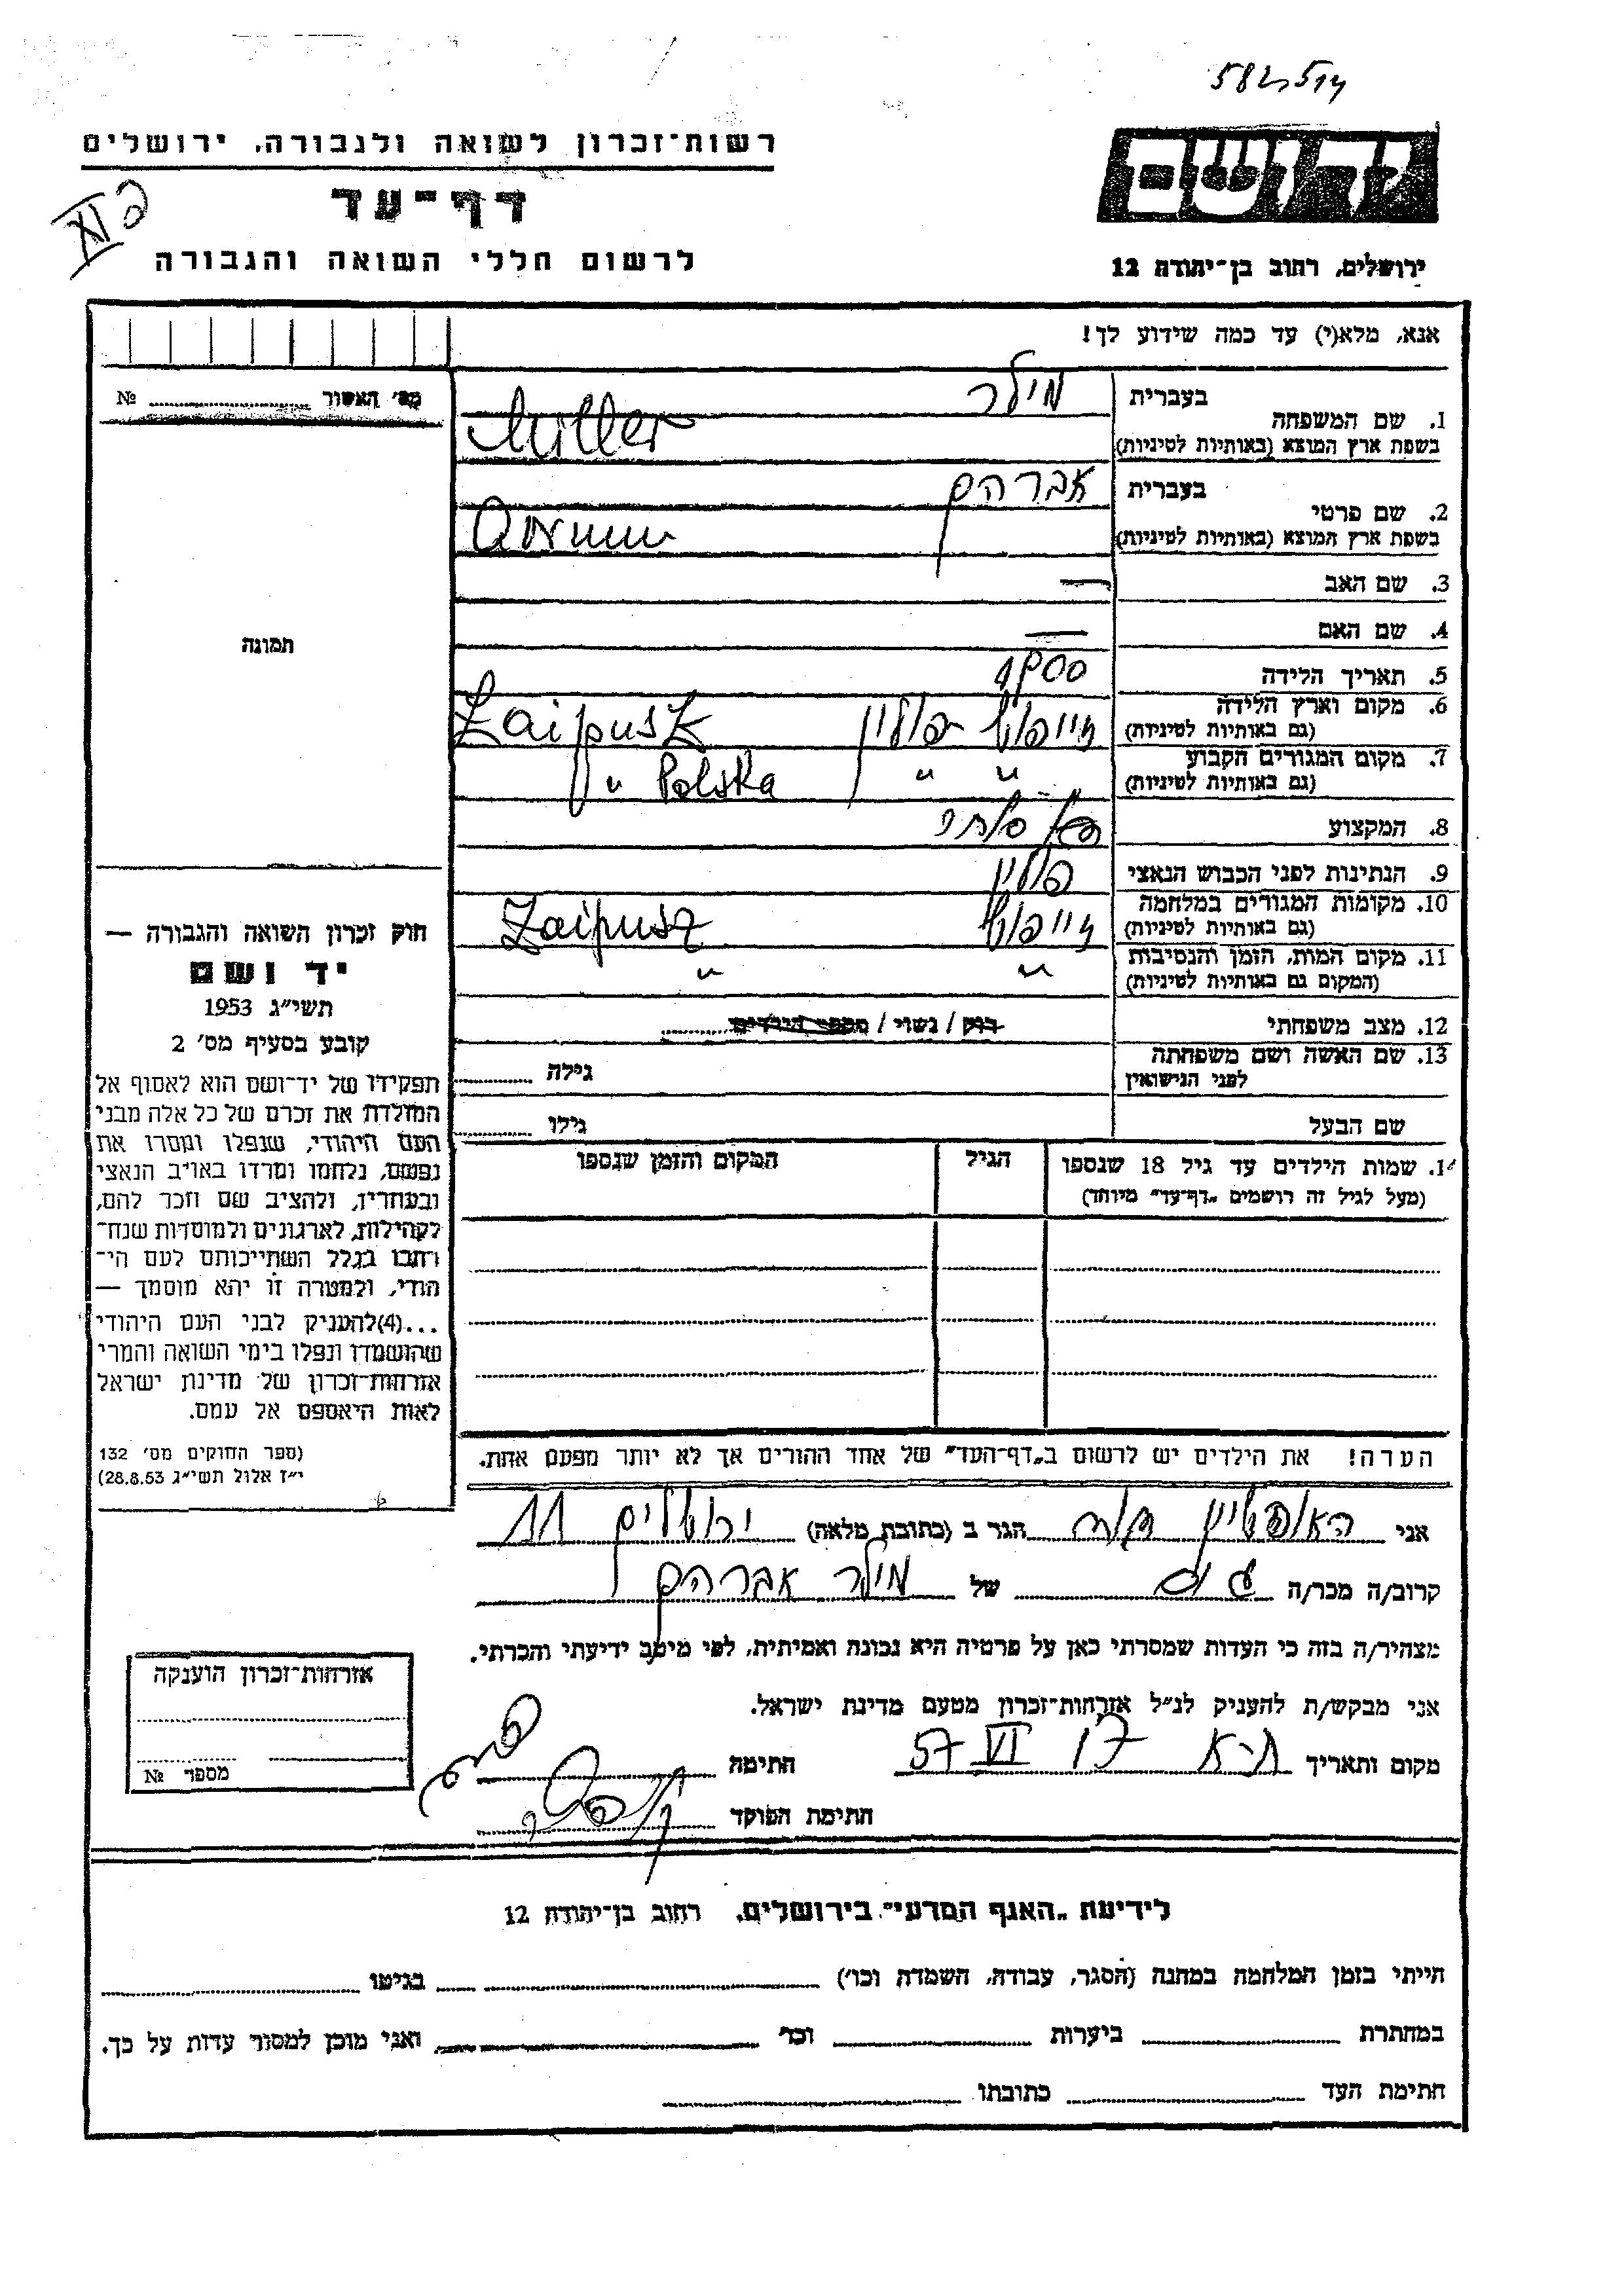 582514
רשות־זכרון לשואה ולגבורה, ירושלים
דף־עד
לרשום חללי השואה והגבורה
יד ושם
ירושלים, רחוב בן־יהודה 12
אנא, מלא(י) עד כמה שידוע לך!
מס׳ האשור ........ №
תמונה
1. שם המשפחה בעברית מילר
בשפת ארץ המוצא (באותיות לטיניות) Miller
2. שם פרטי בעברית אברהם
בשפת ארץ המוצא (באותיות לטיניות)
3. שם האב —
4. שם האם —
5. תאריך הלידה 1900
6. מקום וארץ הלידה פולין
(גם באותיות לטיניות) Zaipusz
7. מקום המגורים הקבוע " "
(גם באותיות לטיניות) " Polska
8. המקצוע
9. הנתינות לפני הכבוש הנאצי פולין
10. מקומות המגורים במלחמה
(גם באותיות לטיניות) Zaipusz
11. מקום המות, הזמן והנסיבות "
(המקום גם באותיות לטיניות) "
12. מצב משפחתי רוק / נשוי / מספר הילדים
13. שם האשה ושם משפחתה
לפני הנישואין גילה
שם הבעל גילו
14. שמות הילדים עד גיל 18 שנספו
(מעל לגיל זה רושמים „דף־עד” מיוחד)
הגיל
המקום והזמן שנספו
חוק זכרון השואה והגבורה —
יד ושם
תשי״ג 1953
קובע בסעיף מס׳ 2
תפקידו של יד־ושם הוא לאסוף אל
המולדת את זכרם של כל אלה מבני
העם היהודי, שנפלו ומסרו את
נפשם, נלחמו ומרדו באויב הנאצי
ובעוזריו, ולהציב שם וזכר להם,
לקהילות, לארגונים ולמוסדות שנח־
רבו בגלל השתייכותם לעם הי־
הודי, ולמטרה זו יהא מוסמך —
...(4)להעניק לבני העם היהודי
שהושמדו ונפלו בימי השואה והמרי
אזרחות־זכרון של מדינת ישראל
לאות היאספם אל עמם.
(ספר החוקים מס׳ 132
י״ז אלול תשי״ג 28.8.53)
הערה! את הילדים יש לרשום ב„דף־העד” של אחד ההורים אך לא יותר מפעם אחת.
אני הגר ב (כתובת מלאה) ירושלים 11
קרוב/ה מכר/ה של מילר אברהם
מצהיר/ה בזה כי העדות שמסרתי כאן על פרטיה היא נכונה ואמיתית, לפי מיטב ידיעתי והכרתי.
אני מבקש/ת להעניק לנ״ל אזרחות־זכרון מטעם מדינת ישראל.
מקום ותאריך ת-א 17 VI 57 חתימה
חתימת הפוקד
אזרחות־זכרון הוענקה
מספר №
לידיעת „האגף המדעי” בירושלים, רחוב בן־יהודה 12
הייתי בזמן המלחמה במחנה (הסגר, עבודה, השמדה וכו׳) בגיטו
במחתרת ביערות וכו׳ ואני מוכן למסור עדות על כך.
חתימת העד כתובתו